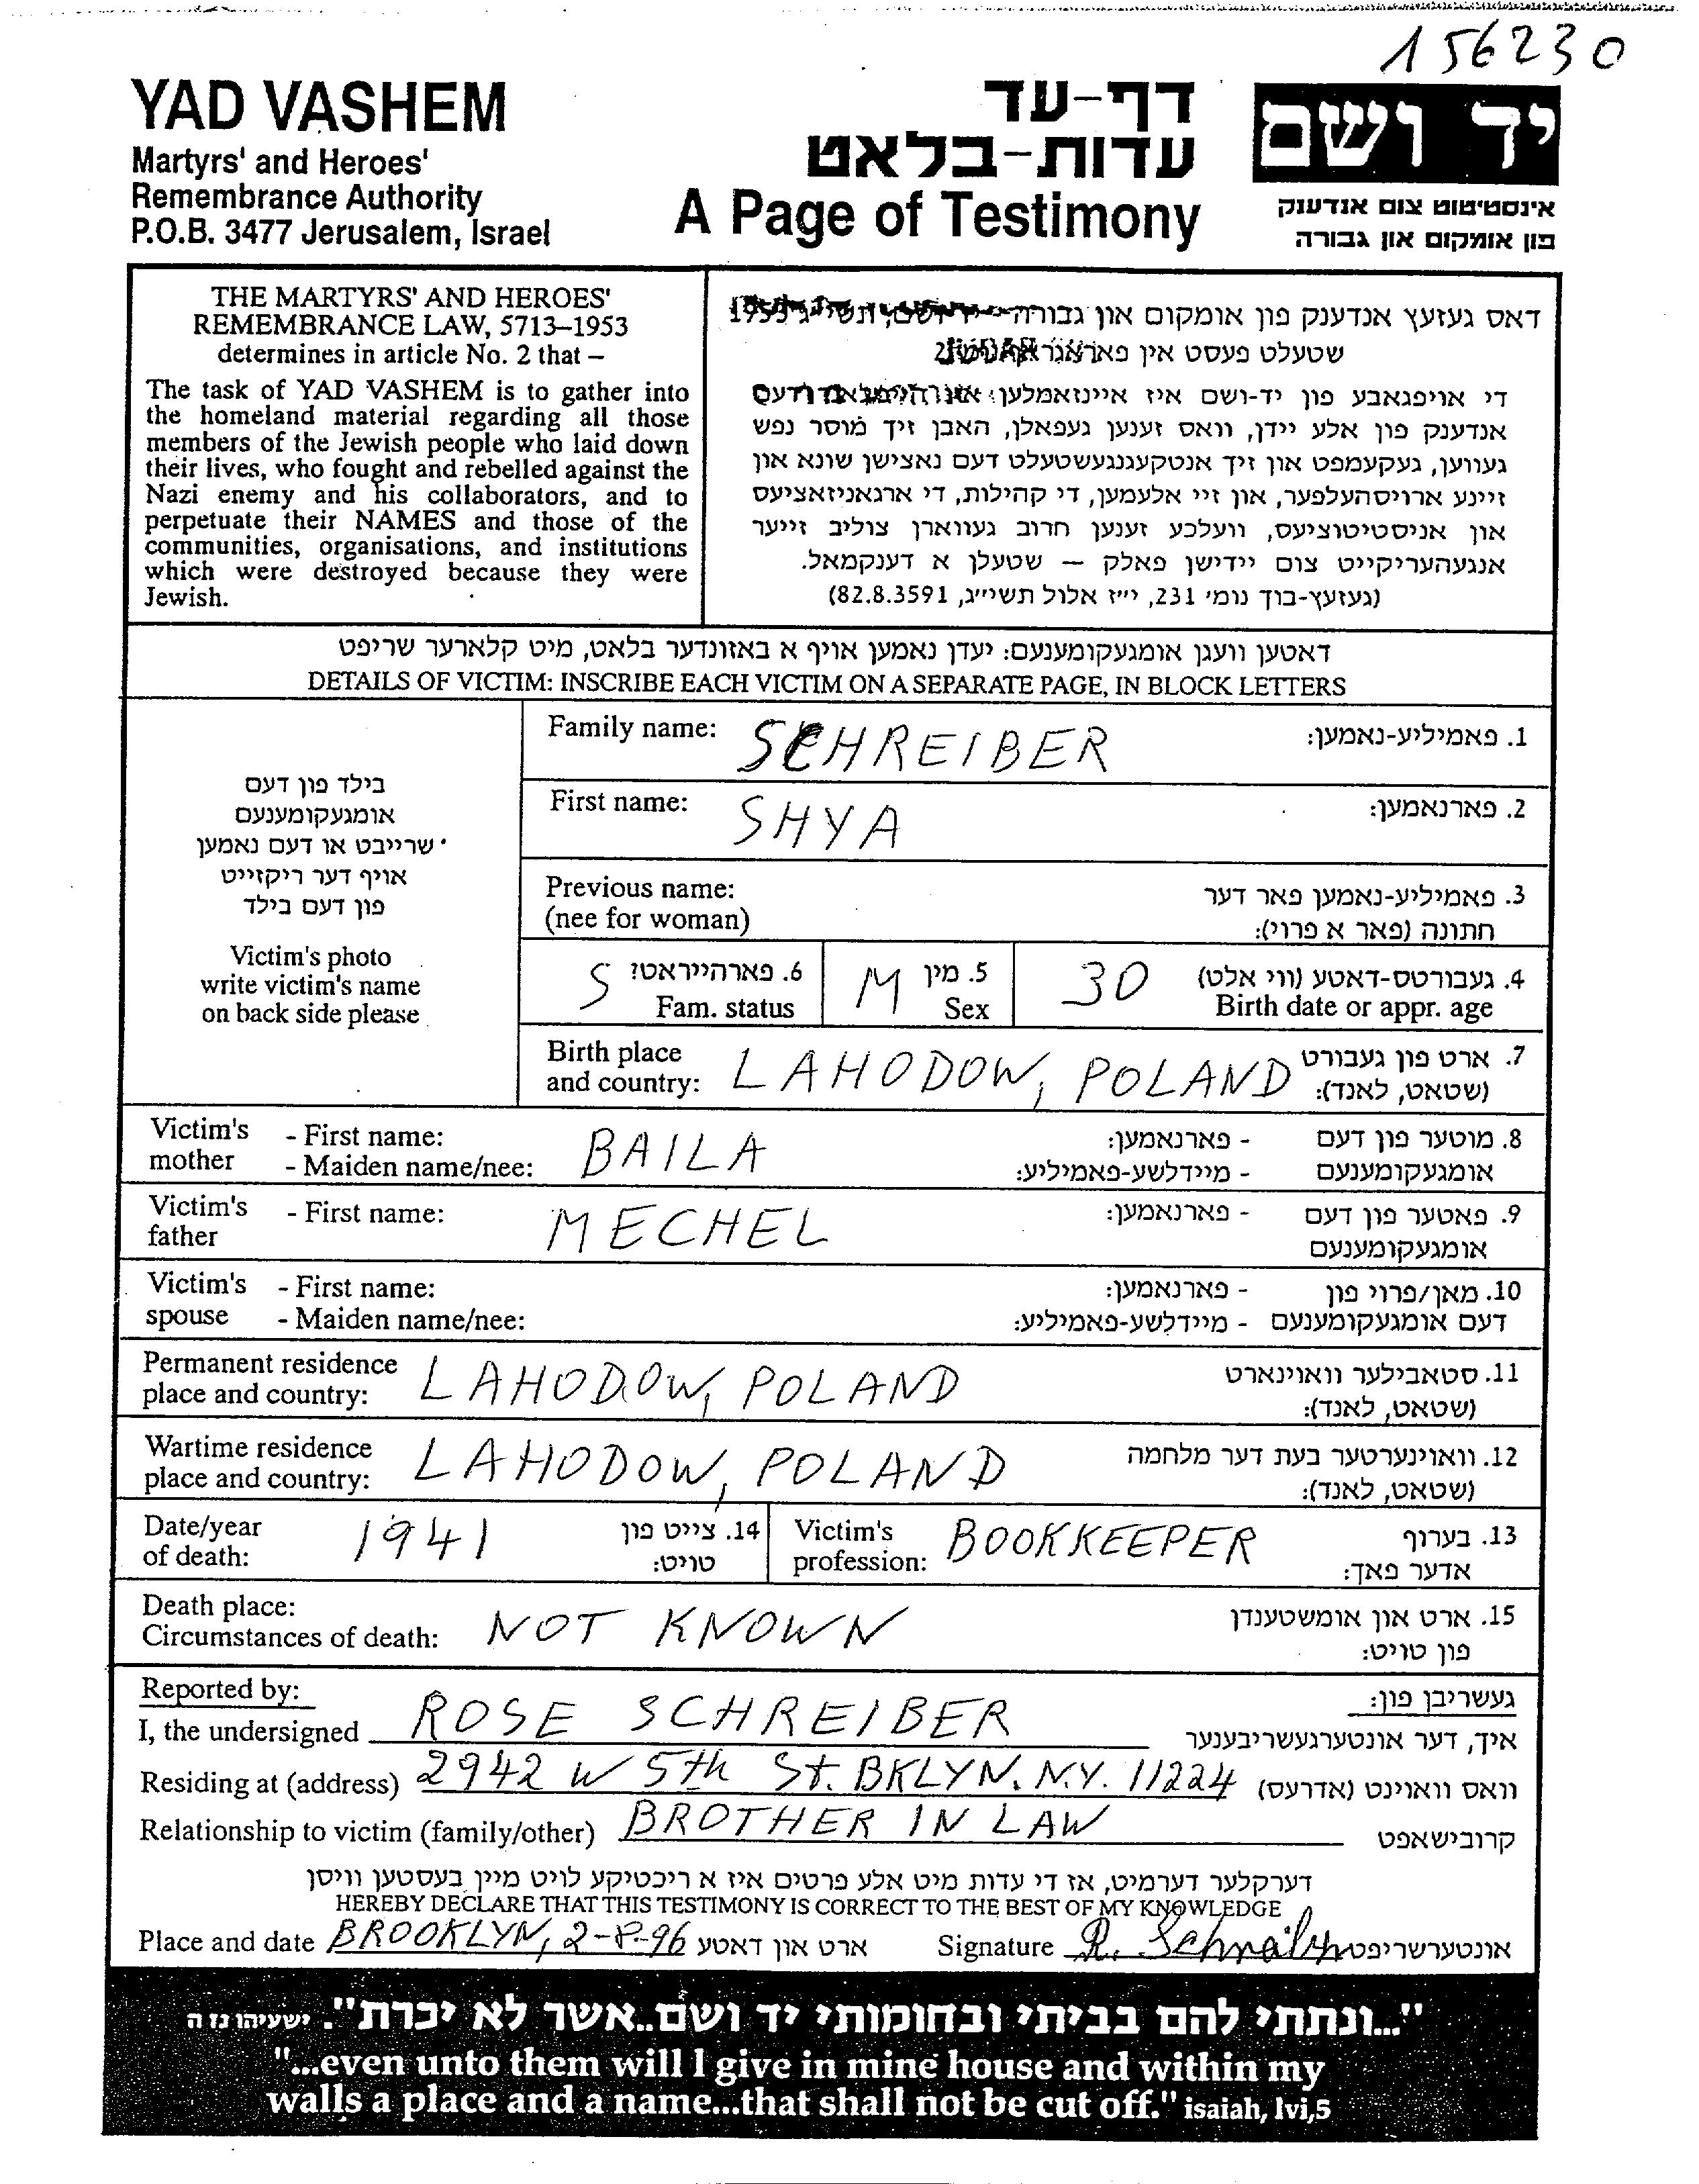 156230
YAD VASHEM
Martyrs' and Heroes'
Remembrance Authority
P.O.B. 3477 Jerusalem, Israel
דף-עד
עדות-בלאט
A Page of Testimony
יד ושם
אינסטיטוט צום אנדענק
פון אומקום און גבורה
THE MARTYRS' AND HEROES'
REMEMBRANCE LAW, 5713–1953
determines in article No. 2 that –
The task of YAD VASHEM is to gather into
the homeland material regarding all those
members of the Jewish people who laid down
their lives, who fought and rebelled against the
Nazi enemy and his collaborators, and to
perpetuate their NAMES and those of the
communities, organisations, and institutions
which were destroyed because they were
Jewish.
דאס געזעץ אנדענק פון אומקום און גבורה
שטעלט פעסט אין פאראגראף
די אויפגאבע פון יד-ושם איז איינזאמלען
אנדענק פון אלע יידן, וואס זענען געפאלן, האבן זיך מוסר נפש
געווען, געקעמפט און זיך אנטקעגנגעשטעלט דעם נאצישן שונא און
זיינע ארויסהעלפער, און זיי אלעמען, די קהילות, די ארגאניזאציעס
און אניסטיטוציעס, וועלכע זענען חרוב געווארן צוליב זייער
אנגעהעריקייט צום יידישן פאלק – שטעלן א דענקמאל.
(געזעץ-בוך נומ' 231, י״ז אלול תשי״ג, 82.8.3591)
דאטען וועגן אומגעקומענעם: יעדן נאמען אויף א באזונדער בלאט, מיט קלארער שריפט
DETAILS OF VICTIM: INSCRIBE EACH VICTIM ON A SEPARATE PAGE, IN BLOCK LETTERS
בילד פון דעם
אומגעקומענעם
שרייבט או דעם נאמען
אויף דער ריקזייט
פון דעם בילד
Victim's photo
write victim's name
on back side please
Family name: SCHREIBER 1. פאמיליע-נאמען:
First name: SHYA 2. פארנאמען:
Previous name: 3. פאמיליע-נאמען פאר דער
(nee for woman) חתונה (פאר א פרוי):
S 6. פארהייראט? M 5. מין 30 4. געבורטס-דאטע (ווי אלט)
Fam. status Sex Birth date or appr. age
Birth place LAHODOW, POLAND 7. ארט פון געבורט
and country: (שטאט, לאנד):
Victim's - First name: BAILA - פארנאמען: 8. מוטער פון דעם
mother - Maiden name/nee: - מיידלשע-פאמיליע: אומגעקומענעם
Victim's - First name: MECHEL - פארנאמען: 9. פאטער פון דעם
father אומגעקומענעם
Victim's - First name: - פארנאמען: 10. מאן/פרוי פון
spouse - Maiden name/nee: - מיידלשע-פאמיליע: דעם אומגעקומענעם
Permanent residence LAHODOW, POLAND 11. סטאבילער וואוינארט
place and country: (שטאט, לאנד):
Wartime residence LAHODOW, POLAND 12. וואוינערטער בעת דער מלחמה
place and country: (שטאט, לאנד):
Date/year 1941 14. צייט פון Victim's BOOKKEEPER 13. בערוף
of death: טויט: profession: אדער פאך:
Death place: NOT KNOWN 15. ארט און אומשטענדן
Circumstances of death: פון טויט:
Reported by: געשריבן פון:
I, the undersigned ROSE SCHREIBER איך, דער אונטערגעשריבענער
Residing at (address) 2942 W 5th St. BKLYN. N.Y. 11224 וואס וואוינט (אדרעס)
Relationship to victim (family/other) BROTHER IN LAW קרובישאפט
דערקלער דערמיט, אז די עדות מיט אלע פרטים איז א ריכטיקע לויט מיין בעסטען וויסן
HEREBY DECLARE THAT THIS TESTIMONY IS CORRECT TO THE BEST OF MY KNOWLEDGE
Place and date BROOKLYN, 2-8-96 ארט און דאטע Signature R. Schreiber אונטערשריפט
"...ונתתי להם בביתי ובחומותי יד ושם..אשר לא יכרת". ישעיהו נו ה
"...even unto them will I give in mine house and within my
walls a place and a name...that shall not be cut off." isaiah, lvi,5